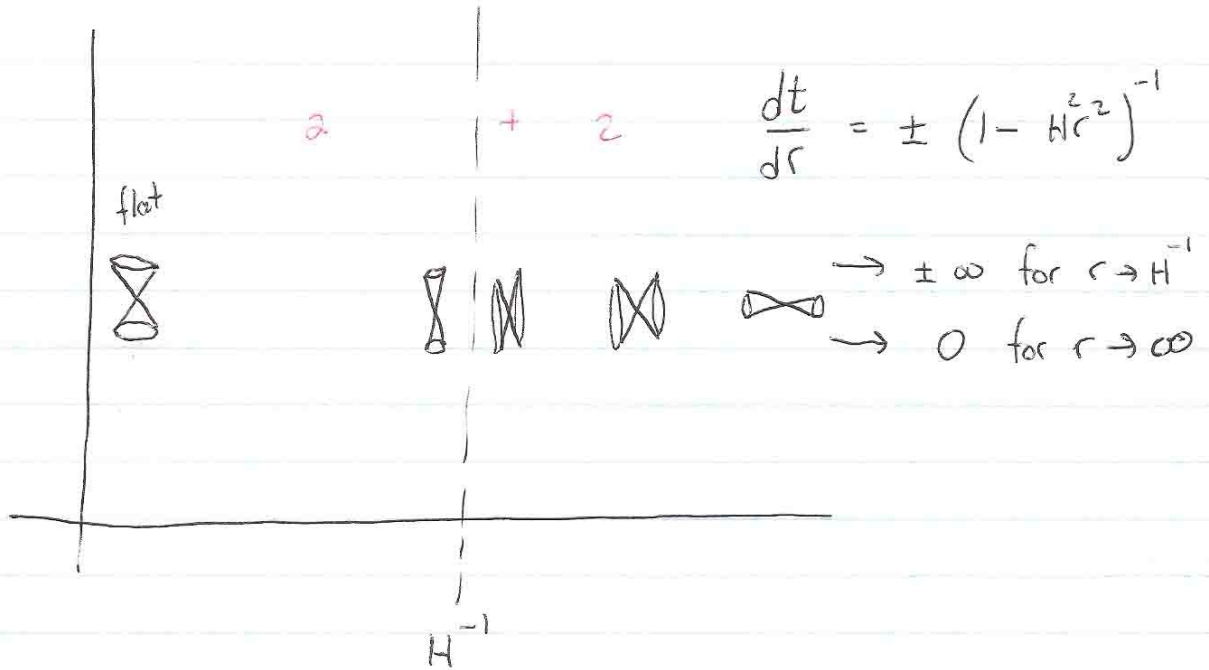 2 + 2
dt/dr = ± (1 - H²r²)⁻¹
flat
→ ± ∞ for r → H⁻¹
→ 0 for r → ∞
H⁻¹